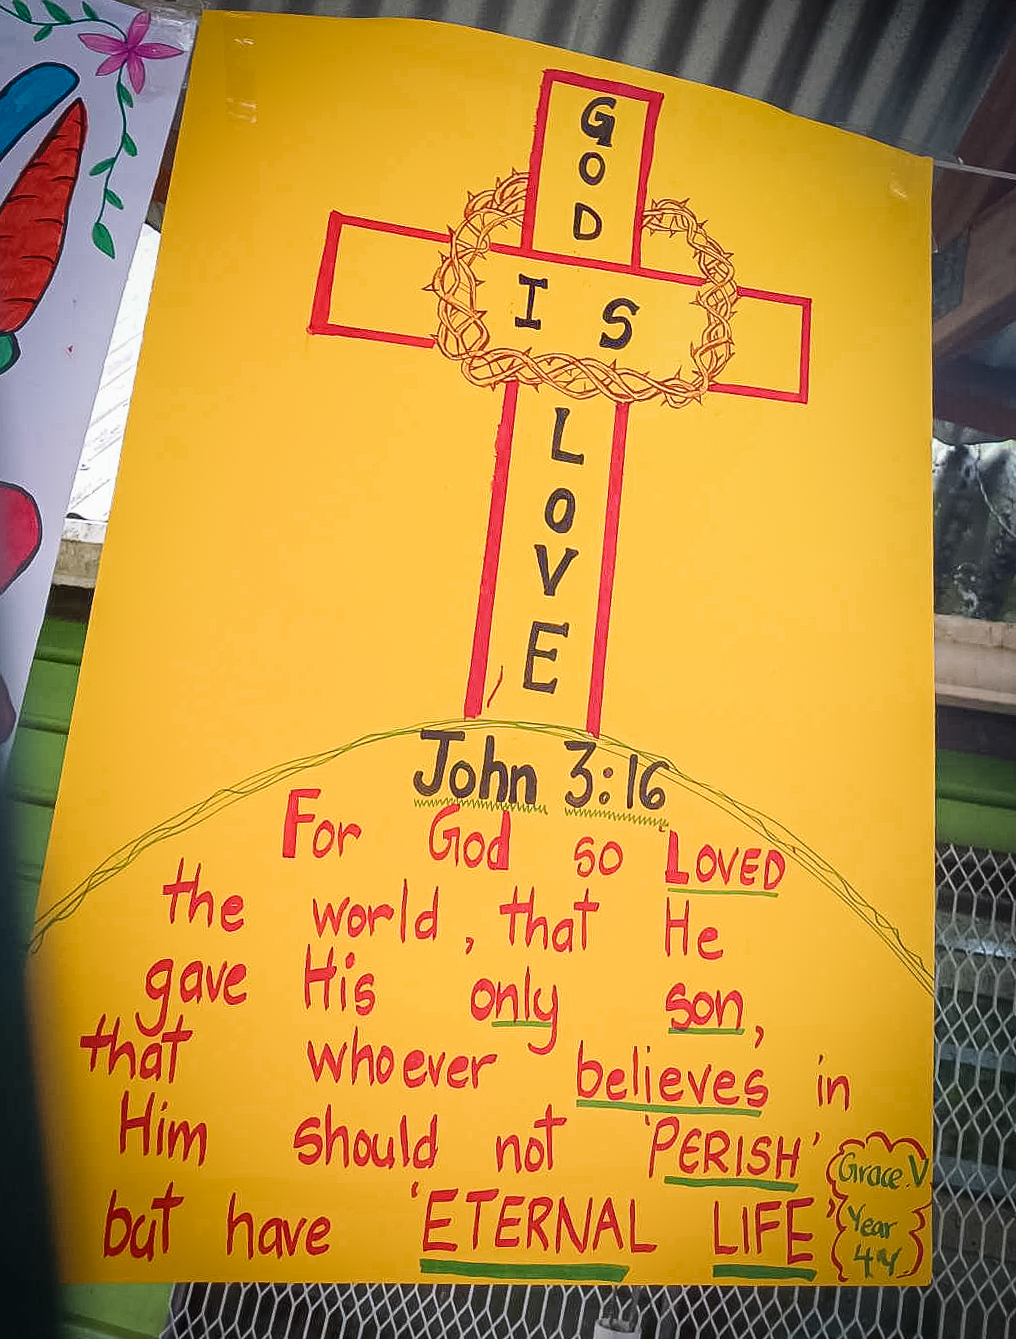 GOD
IS
LOVE
John 3:16
For God so LOVED
the world, that He
gave His only son,
that whoever believes in
Him should not 'PERISH'
but have 'ETERNAL LIFE'
Grace.V
Year
4Y